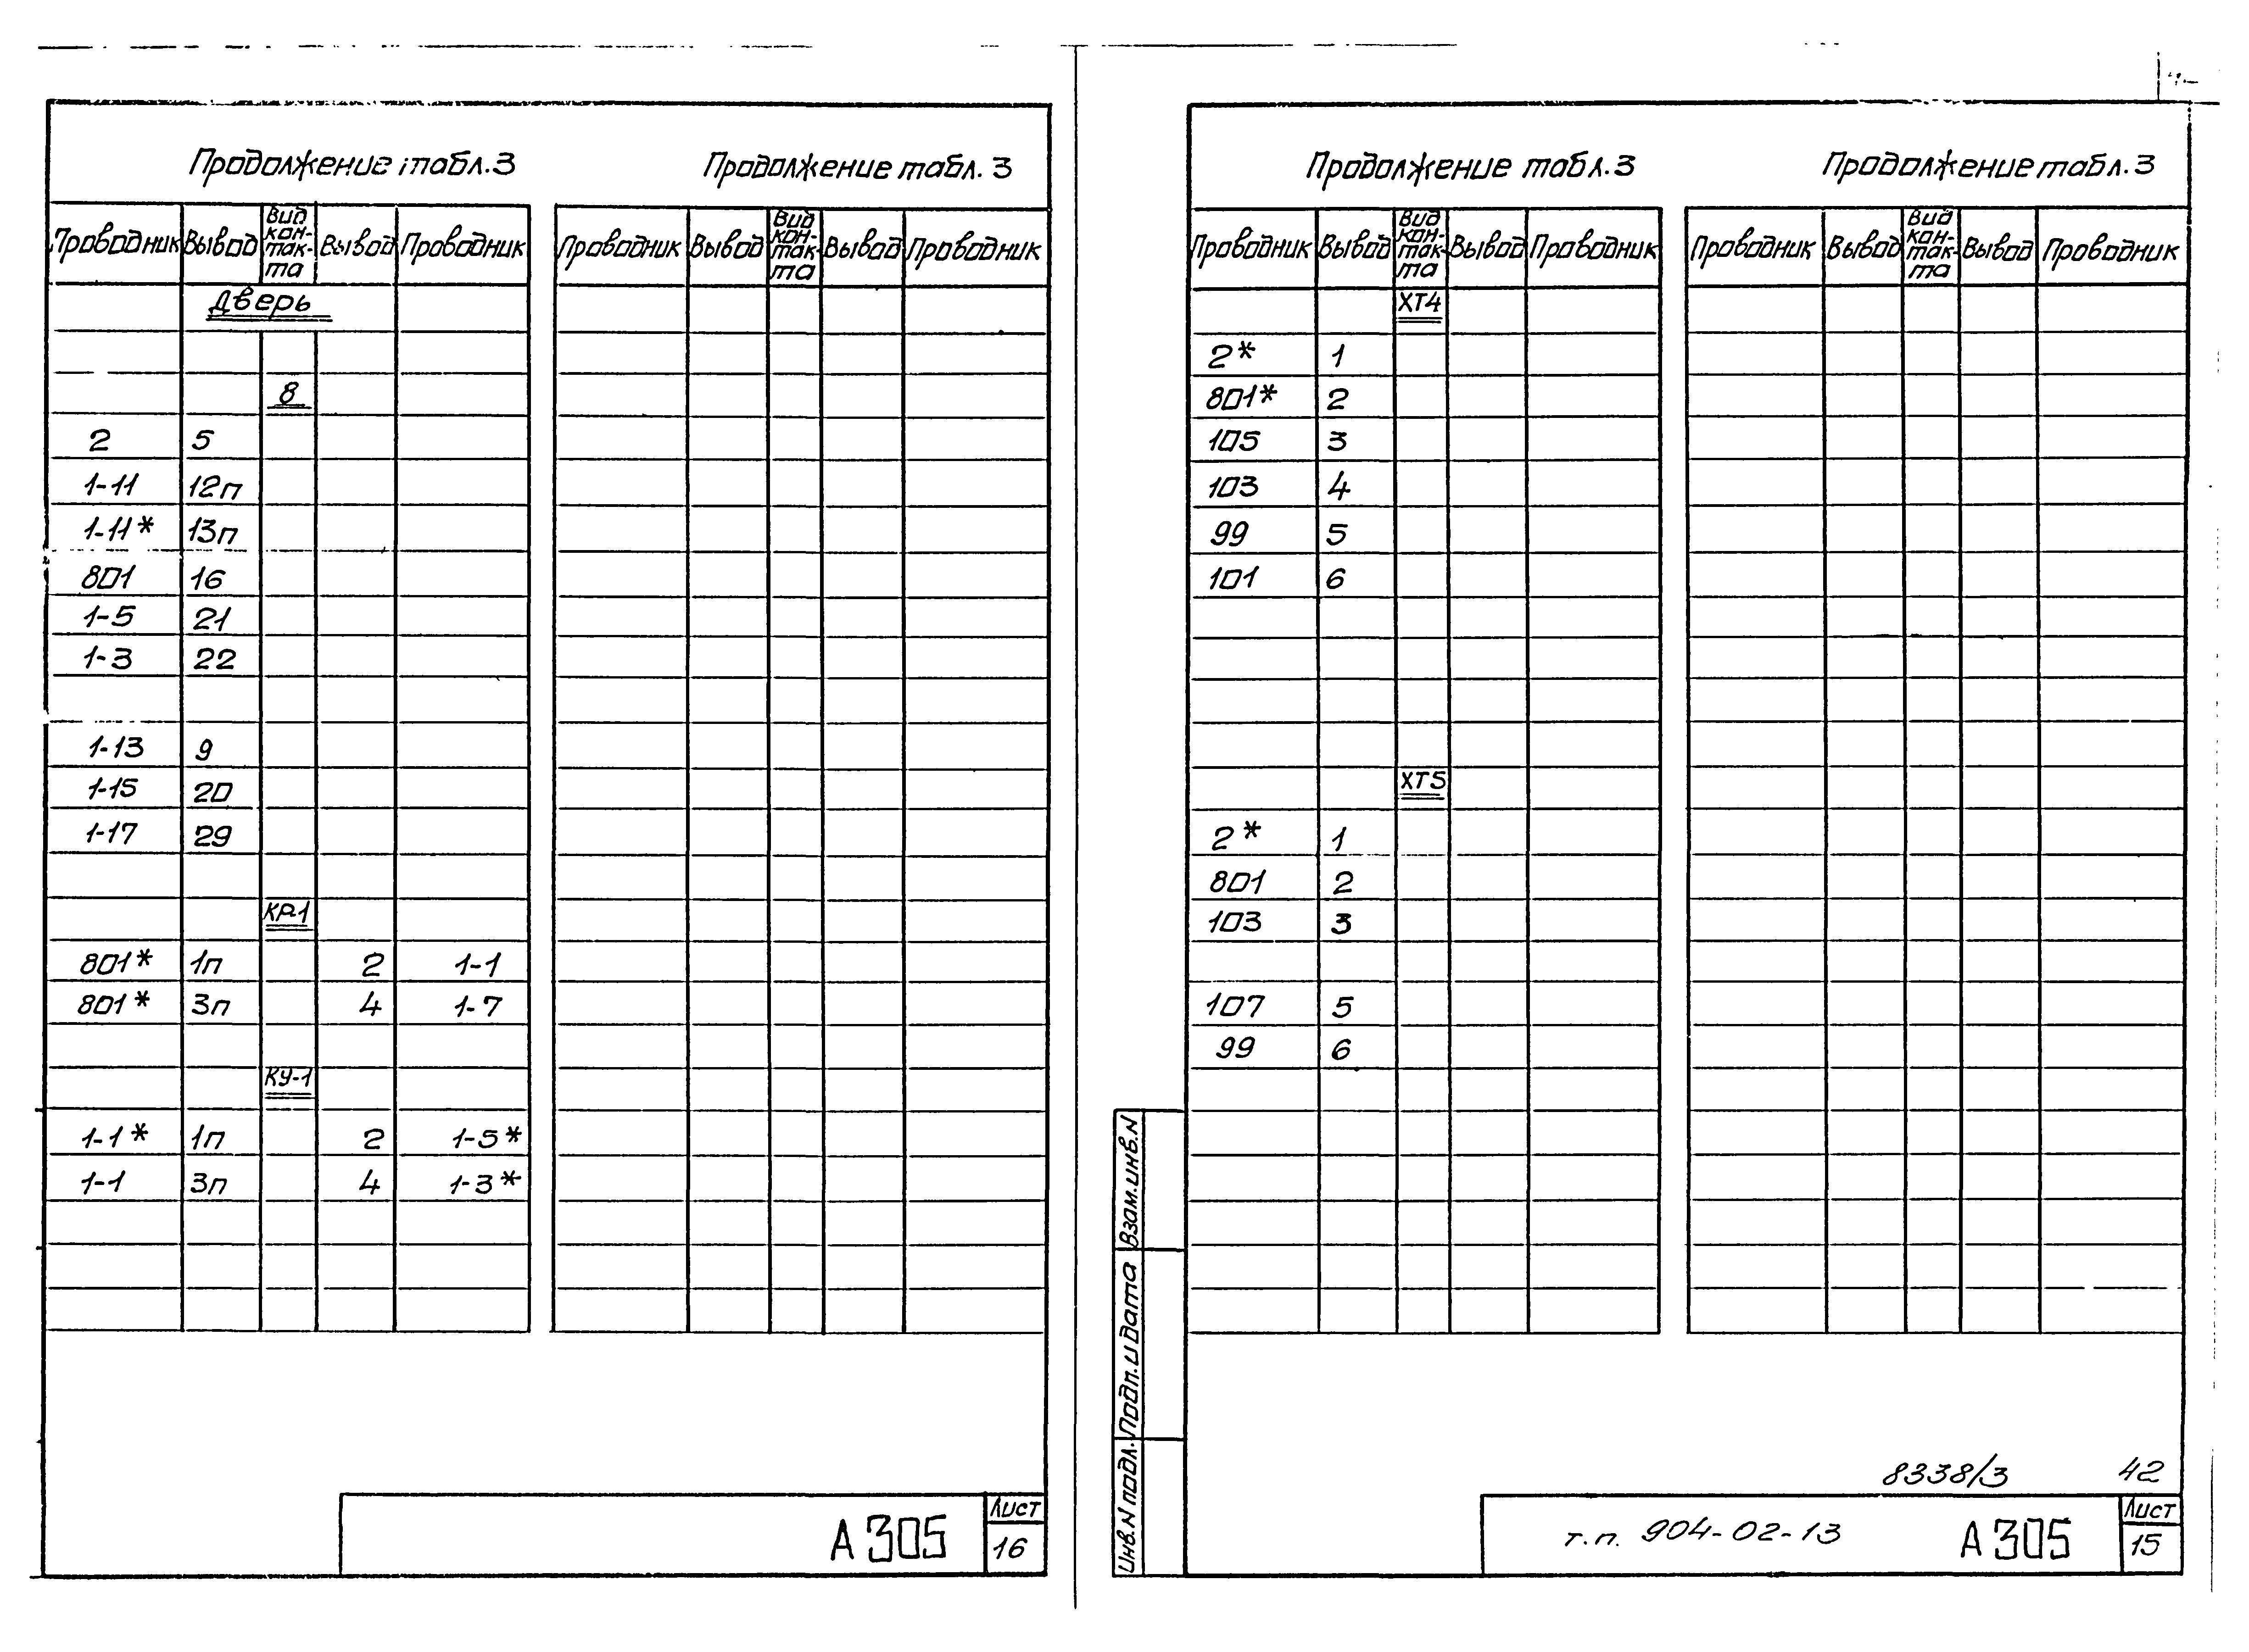 Продолжение табл.3
Проводник Вывод Вид кон-так-та Вывод Проводник
Дверь
8
2 5
1-11 12п
1-11* 13п
801 16
1-5 21
1-3 22
1-13 9
1-15 20
1-17 29
КР-1
801* 1п 2 1-1
801* 3п 4 1-7
КУ-1
1-1* 1п 2 1-5*
1-1 3п 4 1-3*
Продолжение табл. 3
Проводник Вывод Вид кон-так-та Вывод Проводник
А305
Лист
16
Продолжение табл.3
Проводник Вывод Вид кон-так-та Вывод Проводник
ХТ4
2* 1
801* 2
105 3
103 4
99 5
101 6
ХТ5
2* 1
801 2
103 3
107 5
99 6
Продолжение табл.3
Проводник Вывод Вид кон-так-та Вывод Проводник
Взам.инв.N
Подп.и дата
Инв.N подл.
8338/3 42
т.п. 904-02-13
А305
Лист
15